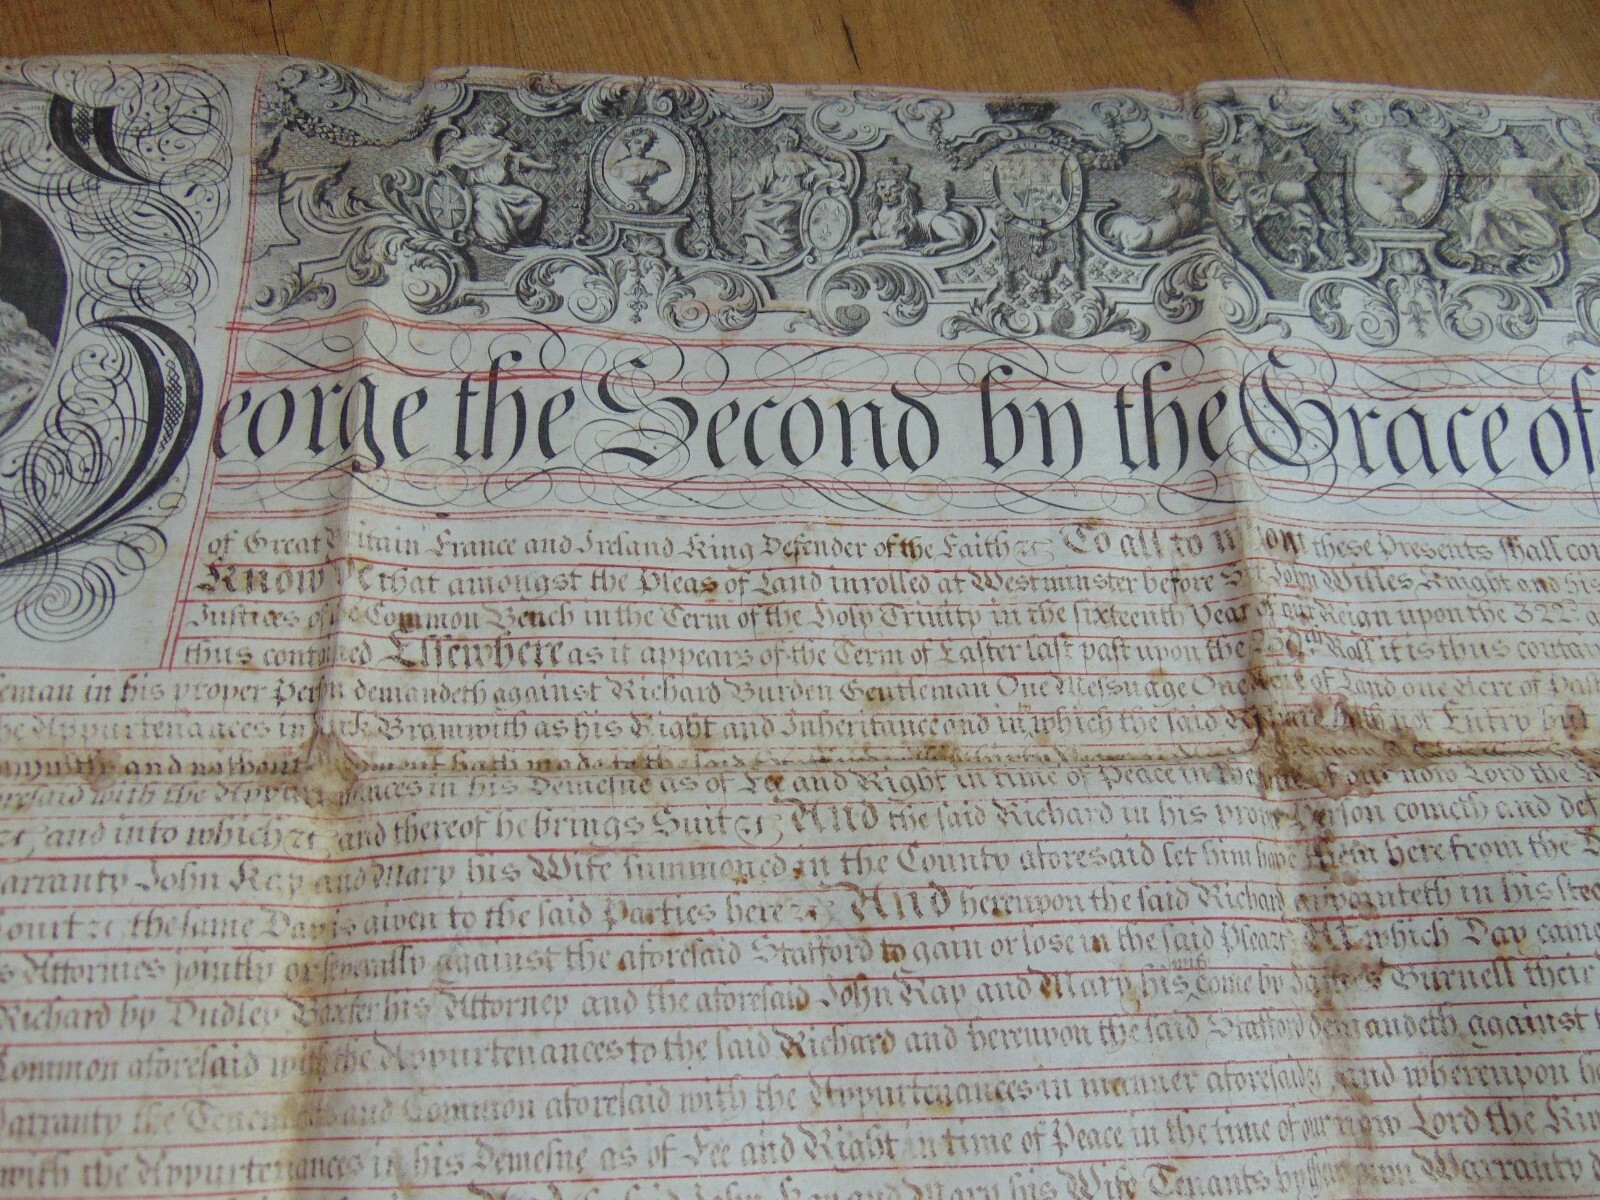 George the Second by the Grace of
of Great Britain France and Ireland King Defender of the Faith &c To all to whom these Presents shall
Know Ye that amongst the Pleas of Land inrolled at Westminster before Sr. John Willes Knight and his
Justices of the Common Bench in the Term of the Holy Trinity in the sixteenth Year of our Reign upon the 322d.
thus contained Elsewhere as it appears of the Term of Easter last past upon the Roll it is thus
in his proper Person demandeth against Richard Burden Gentleman One Messuage One Acre of Land one Acre of
Appurtenances in Kirk Bramwith as his Right and Inheritance and in which the said Richard hath not Entry but
and without
aforesaid with the Appurtenances in his Demesne as of Fee and Right in time of Peace in the time of our now Lord the
&c and into which &c and thereof he brings Suit &c And the said Richard in his proper Person cometh and
Warranty John Kay and Mary his Wife summoned in the County aforesaid let him have them here from the
Court &c the same Day is given to the said Parties here &c And hereupon the said Richard appointeth in his
Attornies jointly or severally against the aforesaid Stafford to gain or lose in the said Plea &c At which Day came
Richard by Dudley Baxter his Attorney and the aforesaid John Kay and Mary his wife come by James Burnell their
Common aforesaid with the Appurtenances to the said Richard and hereupon the said Stafford demandeth against
Warranty the Tenements and Common aforesaid with the Appurtenances in manner aforesaid &c and whereupon he
with the Appurtenances in his Demesne as of Fee and Right in time of Peace in the time of our now Lord the
said John Kay and Mary his Wife Tenants by their own Warranty